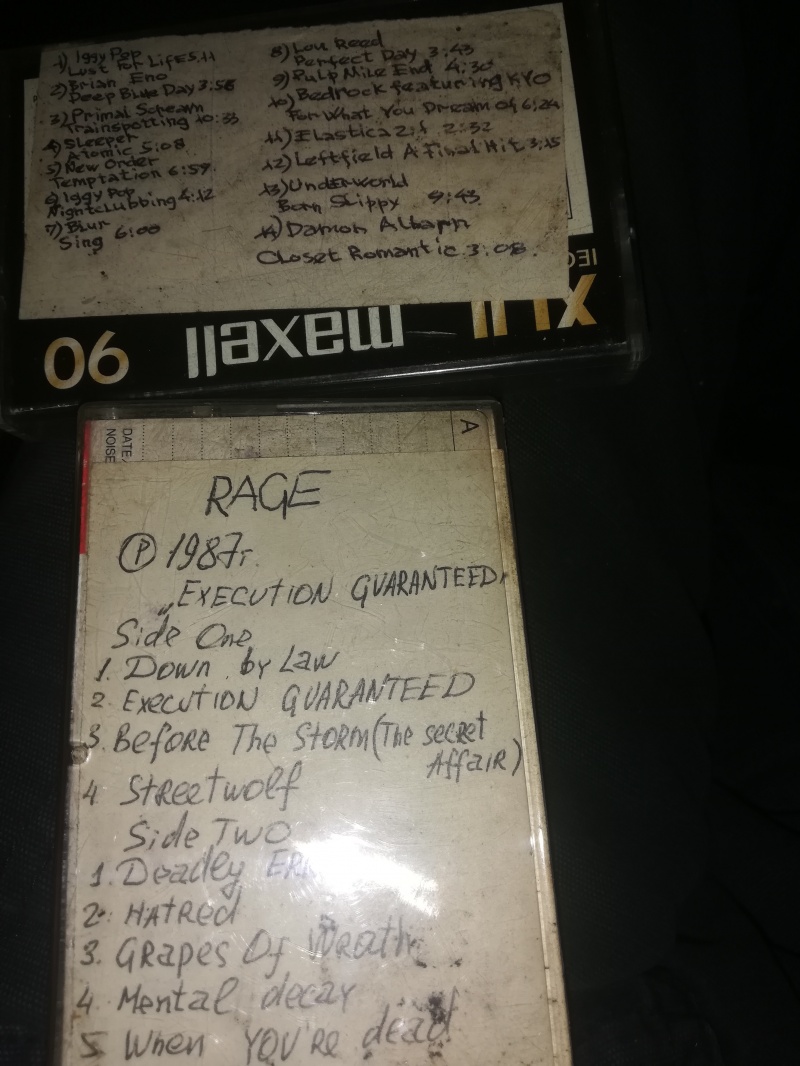 1) Iggy Pop
Lust for Life 5.11
2) Brian Eno
Deep Blue Day 3:56
3) Primal Scream
Trainspotting 10:33
4) Sleeper
Atomic 5:08
5) New Order
Temptation 6:59
6) Iggy Pop
Nightclubbing 4:12
7) Blur
Sing 6:00
8) Lou Reed
Perfect Day 3:43
9) Pulp Mile End 4:30
10) Bedrock featuring KYO
For What You Dream Of 6:24
11) Elastica 2:1 2:32
12) Leftfield A Final Hit 3:15
13) Underworld
Born Slippy 9:43
14) Damon Albarn
Closet Romantic 3:08
IEC
XLII
maxell
90
A
DATE/
NOISE
RAGE
Ⓟ 1987г.
„EXECUTION GUARANTEED"
Side One
1. Down by Law
2 EXECUTION GUARANTEED
3. Before The Storm (The secret
Affair)
4 Streetwolf
Side Two
1. Deadly
2. Hatred
3. Grapes Of Wrath
4. Mental decay
5 When YOU'RE dead